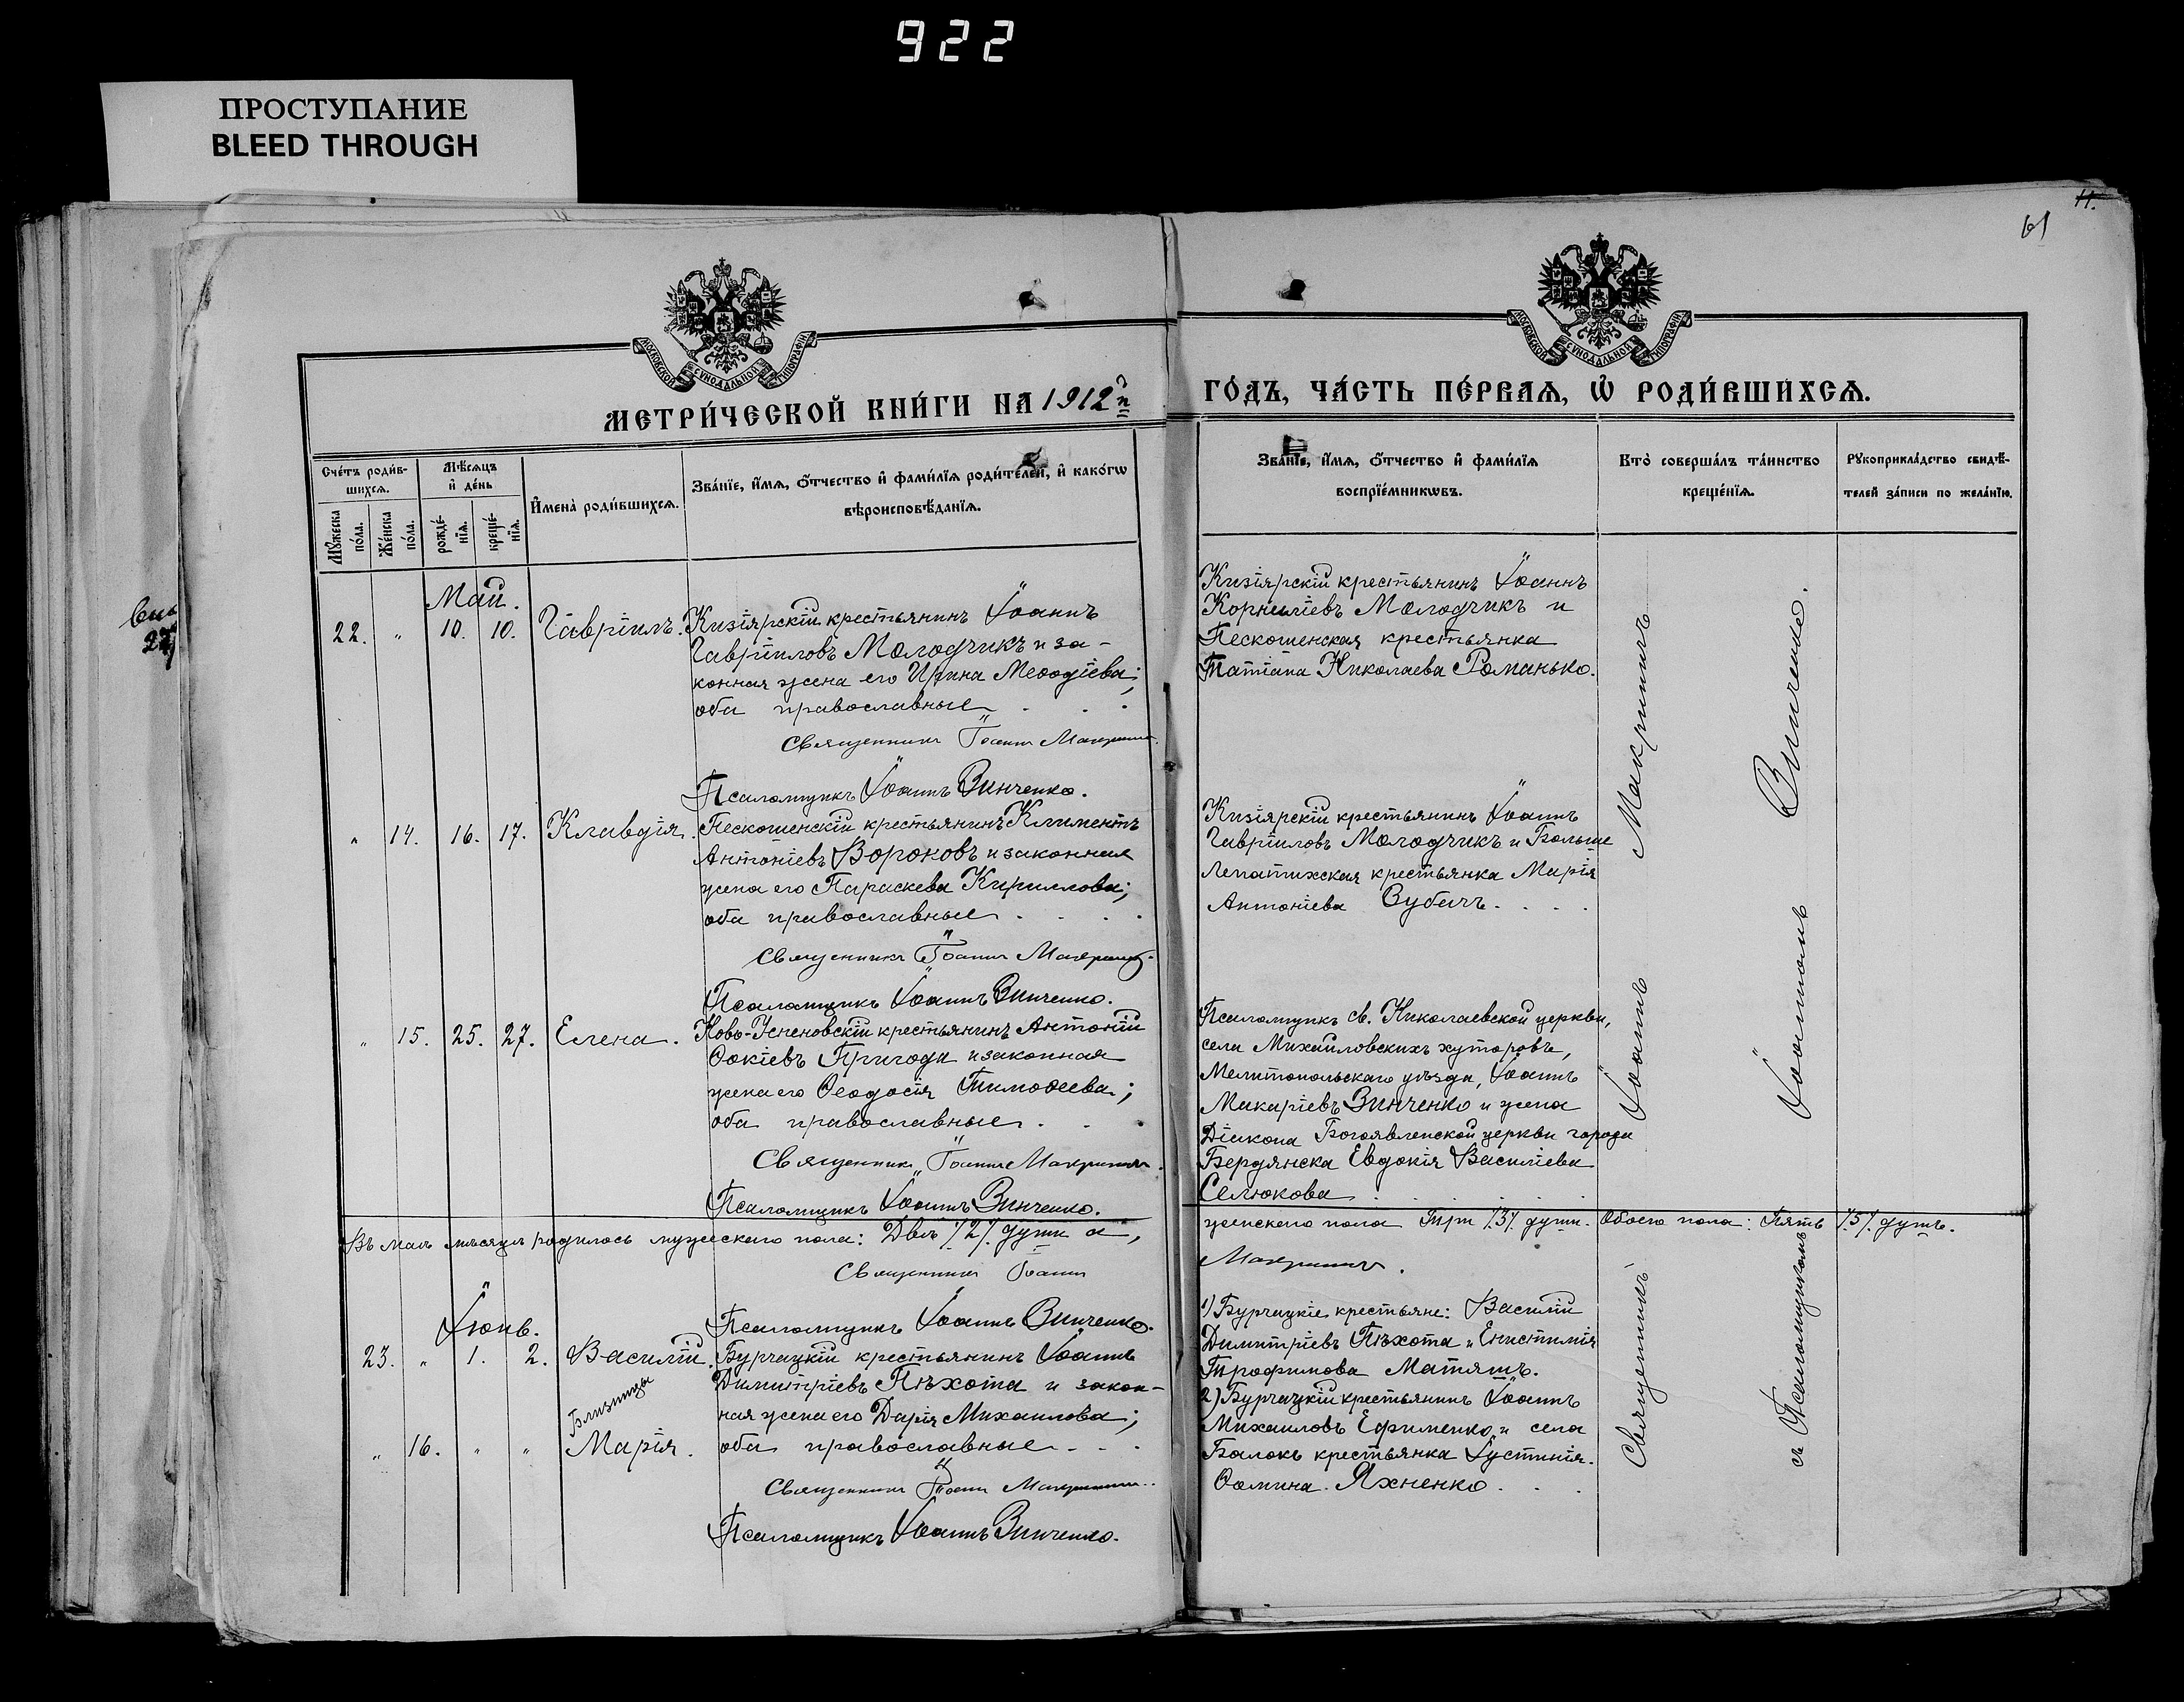 922
ПРОСТУПАНИЕ
BLEED THROUGH
11.
61
МОСКОВСКОЙ СѴНОДАЛЬНОЙ ТИПОГРАФІИ
МОСКОВСКОЙ СѴНОДАЛЬНОЙ ТИПОГРАФІИ
МЕТРИ́ЧЕСКОЙ КНИ́ГИ НА 1912й ГО́ДЪ, ЧА́СТЬ ПЕ́РВАѦ, Ѽ РОДИ́ВШИХСѦ.
Сче́тъ роди́в-
шихсѧ.
Мꙋ́жеска по́ла.
Же́нска по́ла.
Мѣ́сѧцъ
и҆ де́нь
рожде́-
нїѧ.
креще́-
нїѧ.
И҆мена̀ роди́вшихсѧ.
Зва́нїе, и҆́мѧ, ѻ҆́тчество и҆ фами́лїѧ роди́телей, и҆ како́гѡ
вѣроисповѣ́данїѧ.
Зва́нїе, и҆́мѧ, ѻ҆́тчество и҆ фами́лїѧ
воспрїе́мникѡвъ.
Кто̀ соверша́лъ та́инство
креще́нїѧ.
Рꙋкоприкла́дство свидѣ́-
телей за́писи по жела́нїю.
Май.
22. „ 10. 10. Гавріилъ. Кизіярскій крестьянинъ Іоаннъ
Гавріиловъ Молодчикъ и за-
конная жена его Ирина Меѳодіева;
оба православные
Священникъ Іоаннъ Макриничъ
Псаломщикъ Іоаннъ Винченко.
Кизіярскій крестьянинъ Іоаннъ
Корниліевъ Молодчикъ и
Пескошенская крестьянка
Татіана Николаева Романько.
„ 14. 16. 17. Клавдія. Пескошенскій крестьянинъ Климентъ
Антоніевъ Вороковъ и законная
жена его Параскева Кириллова;
оба православные
Священникъ Іоаннъ Макринич
Псаломщикъ Іоаннъ Винченко.
Кизіярскій крестьянинъ Іоаннъ
Гавріиловъ Молодчикъ и Больше
Лепатихская крестьянка Марія
Антоніева
„ 15. 25. 27. Елена. Ново-Успеновскій крестьянинъ Антоній
Ѳокіевъ Пригода и законная
жена его Ѳеодосія Тимоѳеева;
оба православные
Священникъ Іоаннъ Макринич
Псаломщикъ Іоаннъ Винченко.
Псаломщикъ св. Николаевской церкви,
села Михайловскихъ хуторовъ,
Мелитопольскаго уѣзда, Іоаннъ
Макаріевъ Винченко и жена
Діакона Богоявленской церкви города
Бердянска Евдокія Василіева
Селюкова
Въ маѣ мѣсяцѣ родилось мужескаго пола: Двѣ /2/ души и, женскаго пола Три /3/ души. Обоего пола: Пять /5/ душъ.
Священникъ Іоаннъ Макринич.
Псаломщикъ Іоаннъ Винченко.
Іюнь.
23. „ 1. 2. Василій. Бурчацкій крестьянинъ Іоаннъ
Димитріевъ Пѣхота и закон-
ная жена его Дарія Михаилова;
Близнецы
„ 16. „ „ Марія. оба православные
Священникъ Іоаннъ Макринич
Псаломщикъ Іоаннъ Винченко.
1) Бурчацкіе крестьяне: Василій
Димитріевъ Пѣхота и Епистимія
Трофимова Матяшъ.
2) Бурчацкій крестьянинъ Іоаннъ
Михаиловъ Ефименко и села
Балокъ крестьянка Іустинія
Ѳомина Яхненко.
Священникъ Іоаннъ Макриничъ
съ Псаломщикомъ Іоанномъ Винченко.